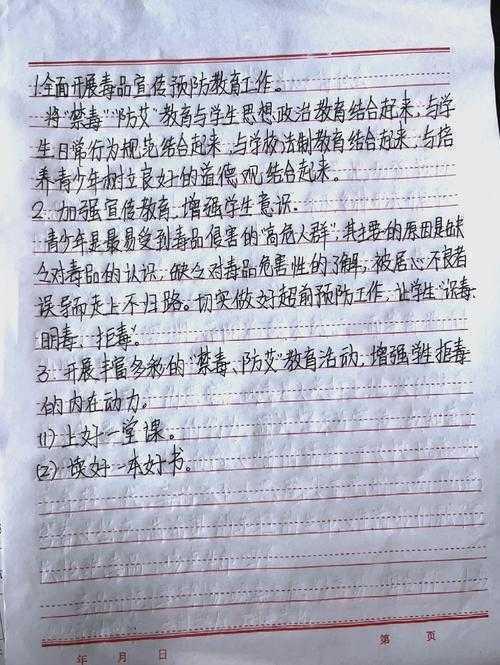 1.全面开展毒品宣传预防教育工作。
将“禁毒”“防艾”教育与学生思想政治教育结合起来,与学
生日常行为规范结合起来,与学校法制教育结合起来,与培
养青少年树立良好的道德观结合起来。
2.加强宣传教育,增强学生意识。
青少年是最易受到毒品侵害的“高危人群”,其主要的原因是缺
乏对毒品的认识,缺乏对毒品危害性的了解,被居心不良者
误导而走上不归路。切实做好超前预防工作,让学生“识毒、
明毒、拒毒”。
3.开展丰富多彩的“禁毒、防艾”教育活动,增强学生拒毒
的内在动力。
(1)上好一堂课。
(2)读好一本好书。
年 月 日 第 页